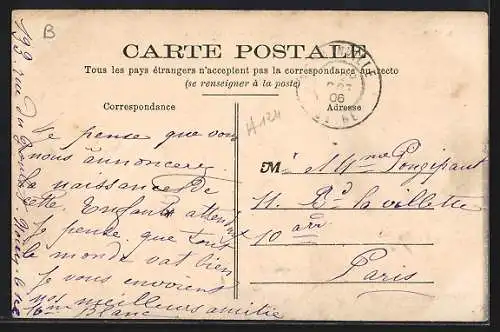 B
CARTE POSTALE
Tous les pays étrangers n'acceptent pas la correspondance au recto
(se renseigner à la poste)
Correspondance
Adresse
06
H 124
Je pense que vous
nous annoncerez
la naissance de
cette Enfant attendu
Je pense que tout
le monde vat bien
Je vous envoient
nos meilleurs amitié
Blanc
M et Mme
11. Bd la villette
10 arr
Paris
193 rue du